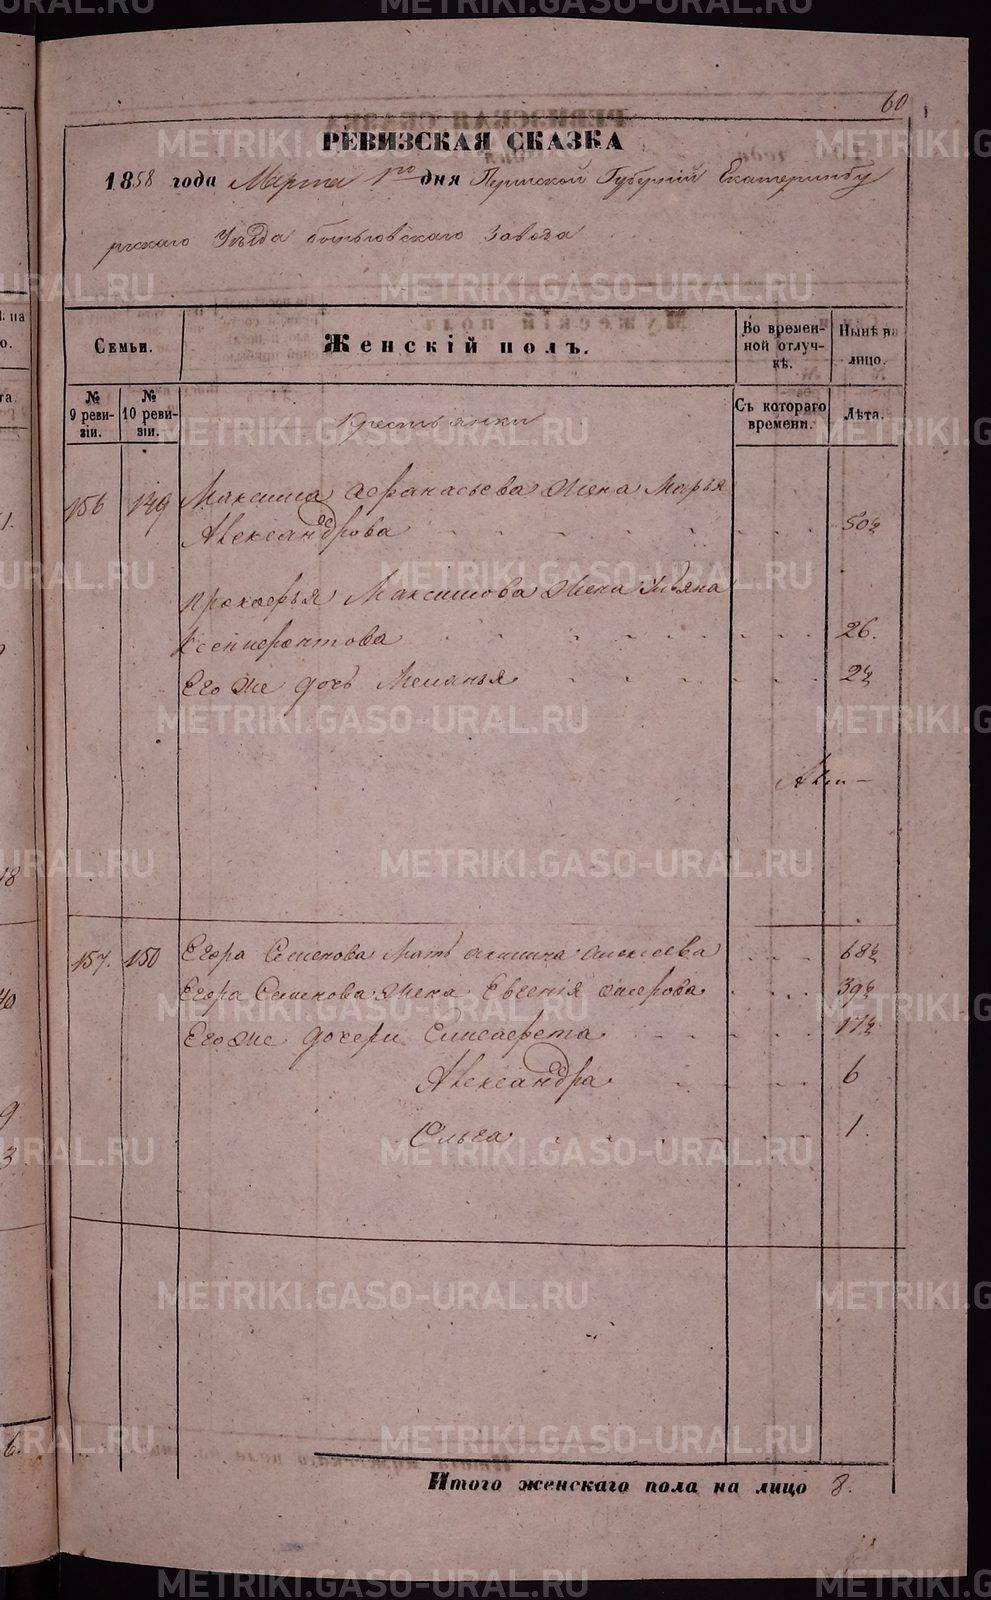 60
РЕВИЗСКАЯ СКАЗКА
1858 года Марта 1го дня Пермской Губерніи Екатеринбу
ргскаго Уѣзда завода
Семьи.
Женскій полъ.
Во времен-
ной отлуч-
кѣ.
Нынѣ на
лицо.
№
9 реви-
зіи.
№
10 реви-
зіи.
Крестьянки
Съ котораго
времени.
Лѣта.
156 149 Максима Афанасьева жена Марья
Александрова 50½
Прокофья Максимова жена
Ксенофонтова 26.
Его же дочь Меланья 2½
157. 150 Егора Семенова мать Акилина Алексѣева 68½
Егора Семенова жена Евгенія 39½
Его же дочери Елисавета 17½
Александра 6
Ольга 1.
Итого женскаго пола на лицо 8.
METRIKI.GASO-URAL.RU